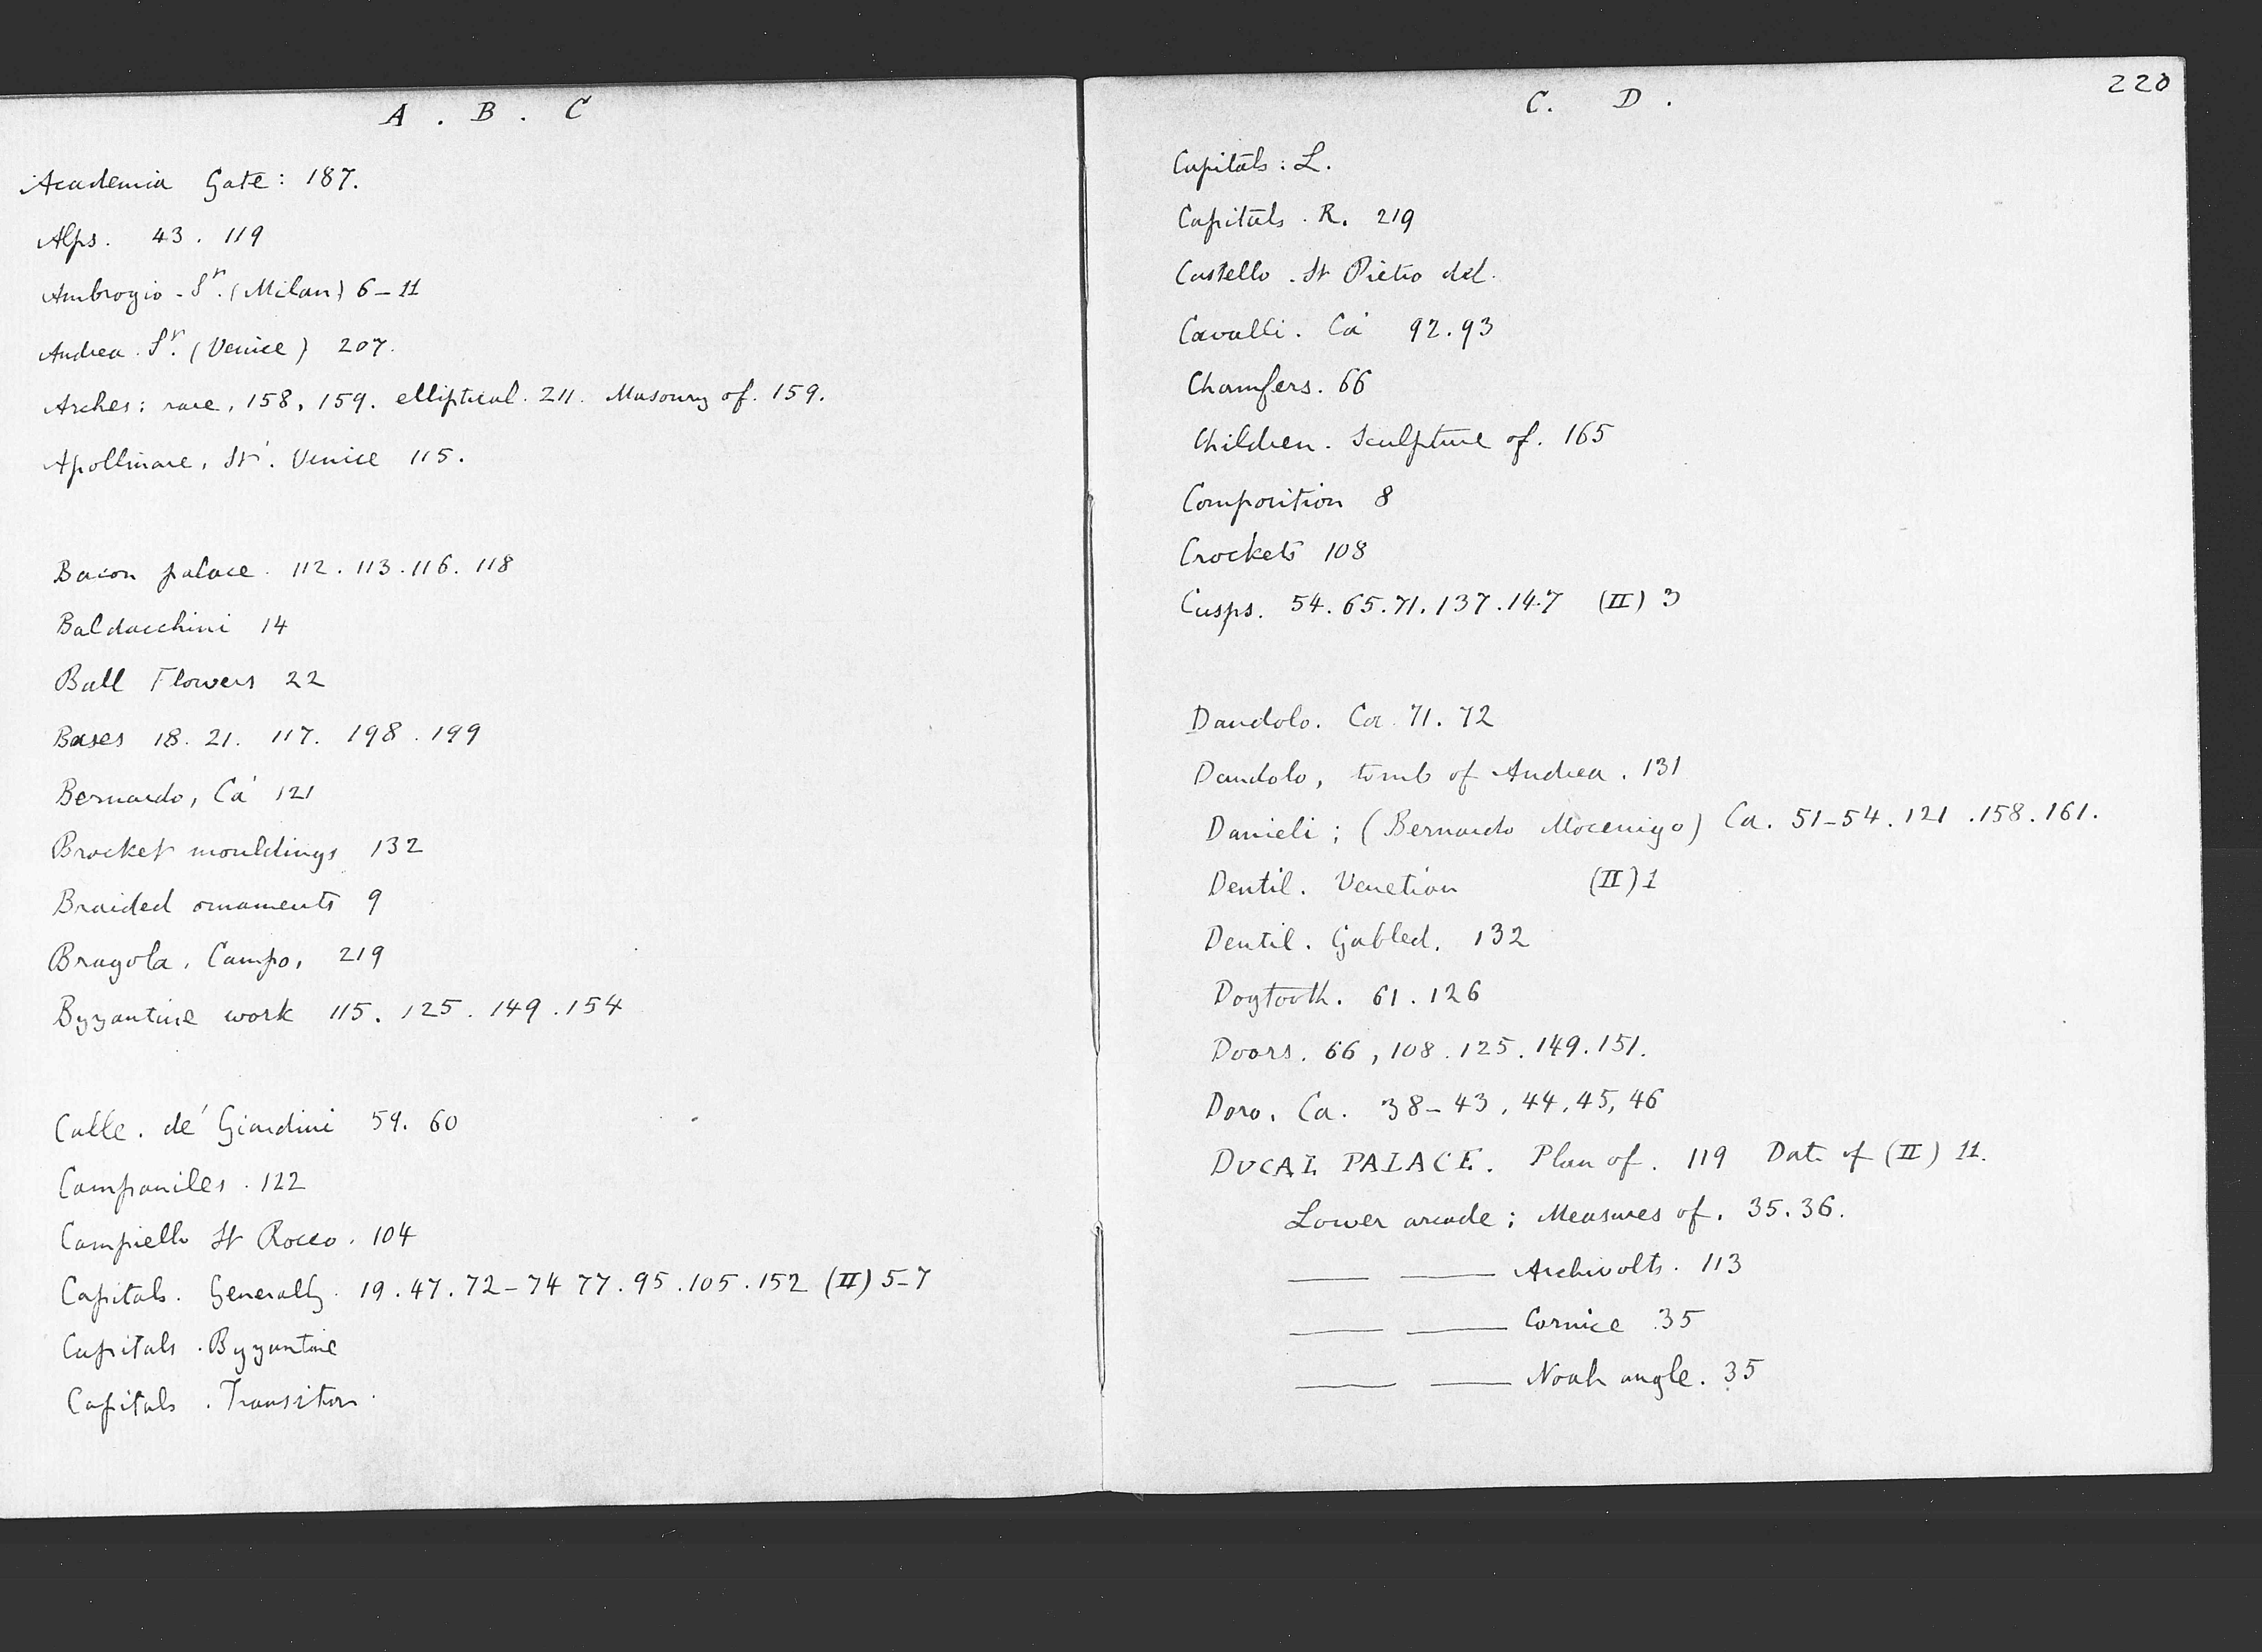 A . B . C
Academia Gate: 187.
Alps. 43. 119
Ambrogio - St. (Milan) 6-11
Andrea. St. (Venice) 207.
Arches: rare, 158, 159. elliptical. 211. Masonry of. 159.
Apollinare, St. Venice 115.
Bacon palace. 112. 113. 116. 118
Baldacchini 14
Ball Flowers 22
Bases 18. 21. 117. 198. 199
Bernardo, Ca' 121
Bracket mouldings 132
Braided ornaments 9
Bragola, Campo, 219
Byzantine work 115. 125. 149. 154
Calle. de' Giardini 59. 60
Campaniles. 122
Campiello St Rocco. 104
Capitals. Generally. 19. 47. 72-74 77. 95. 105. 152 (II) 5-7
Capitals. Byzantine
Capitals. Transition.
220
C. D.
Capitals: L.
Capitals. R. 219
Castello. St Pietro del.
Cavalli. Ca' 92. 93
Chamfers. 66
Children. Sculpture of. 165
Composition 8
Crockets 108
Cusps. 54. 65. 71. 137. 147 (II) 3
Dandolo. Ca. 71. 72
Dandolo, tomb of Andrea. 131
Danieli; (Bernardo Mocenigo) Ca. 51-54. 121. 158. 161.
Dentil. Venetian (II) 1
Dentil. Gabled. 132
Dogtooth. 61. 126
Doors. 66, 108. 125. 149. 151.
Doro. Ca. 38-43, 44, 45, 46
DUCAL PALACE. Plan of. 119 Date of (II) 11.
Lower arcade; Measures of. 35. 36.
—— —— Archivolts. 113
—— —— Cornice 35
—— —— Noah angle. 35